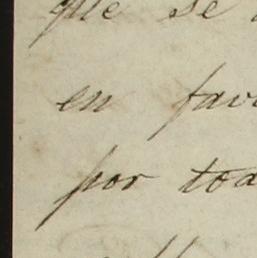 que se
en fav
por tod